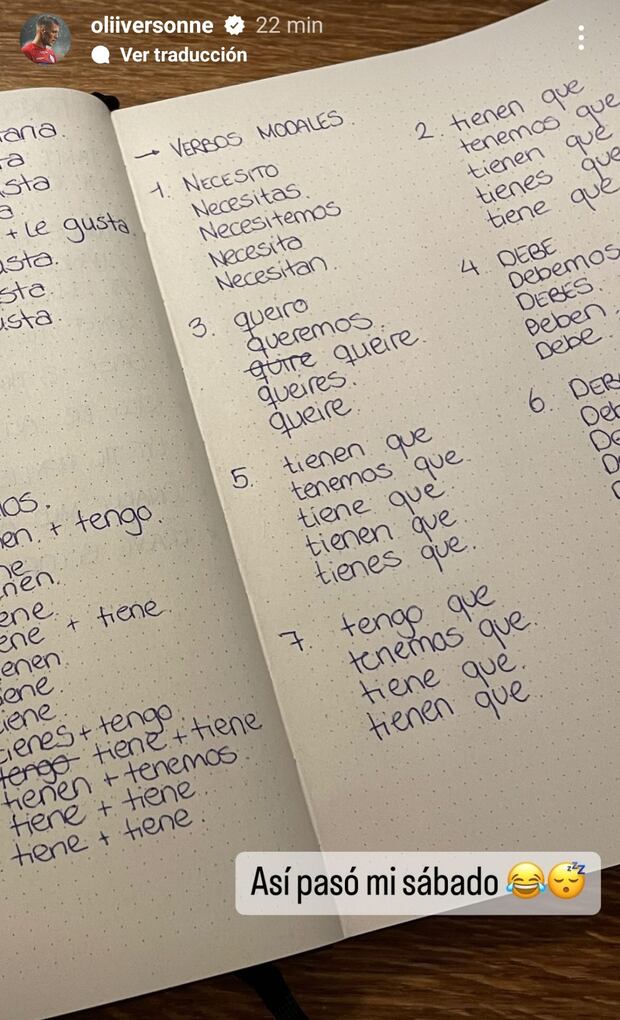 oliiversonne 22 min
Ver traducción
+ le gusta.
en + tengo.
+ tiene
+ tengo
tengo tiene + tiene
tienen + tenemos.
tiene + tiene
tiene + tiene.
→ VERBOS MODALES.
1. NECESITO
Necesitas.
Necesitemos
Necesito
Necesitan.
2. tienen que
tenemos que
tienen que
tienes que
tiene que
3. queiro
queremos.
quire queire.
queires.
queire
4 DEBE
Debemos
DEBES.
Beben.
Debe.
5. tienen que
tenemos que.
tiene que.
tienen que
tienes que.
6. DEB
7. tengo que
tenemos que.
tiene que.
tienen que
Así pasó mi sábado 😂😴